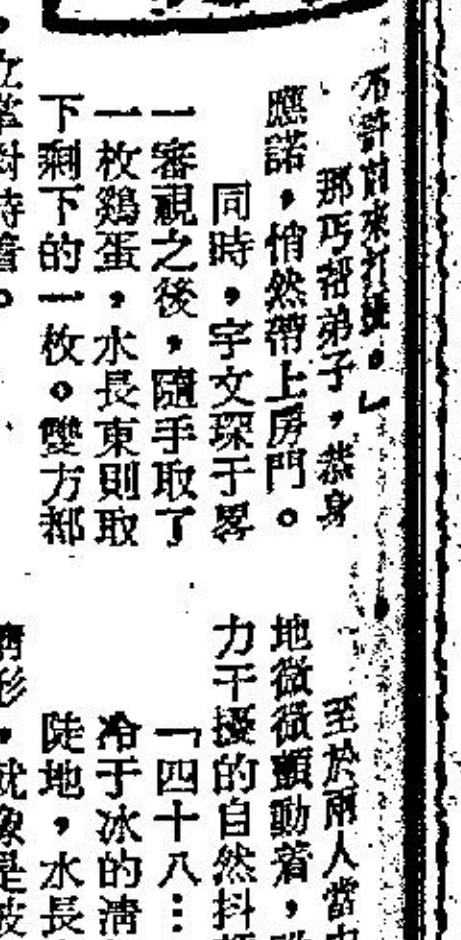 不許前來打擾。」
那丐幫弟子，恭身
應諾，悄然帶上房門。
同時，宇文琛于畧
一審視之後，隨手取了
一枚鷄蛋，水長東則取
下剩下的一枚。雙方都
立掌對峙着。
至於兩人當中
地微微顫動着，
力干擾的自然抖
「四十八…
冷于冰的淸
陡地，水長
情形，就像是被